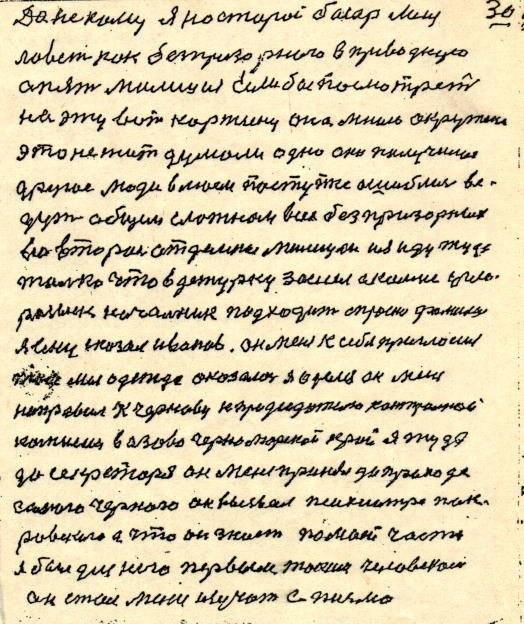 Да некому я на старой базар меня 30
ловет как безпризорного в приводную
опят милиция Если бы посмотрет
на эту вот картину она мния окружена
это не так думали одно оно получилос
другое люди в моем поступке ошиблис ве-
дут общем сложном всех безпризорных
во второе отделене милиции и я иду туда
только что в дежурку зашел а комне
начальник подходит спросил фамилию
я ему сказал иванов. он меня к себе пригласил
моя одежде оказалос я он меня
направил к Чернову к председателю контрольной
комисии в азово черноморской край я туда
до секретаря он меня принял до прихода
самого черного он вызвал психиатра пок-
ровского а что он знает по моей части
я был для него первым таким человеком
он стал меня изучат с писма